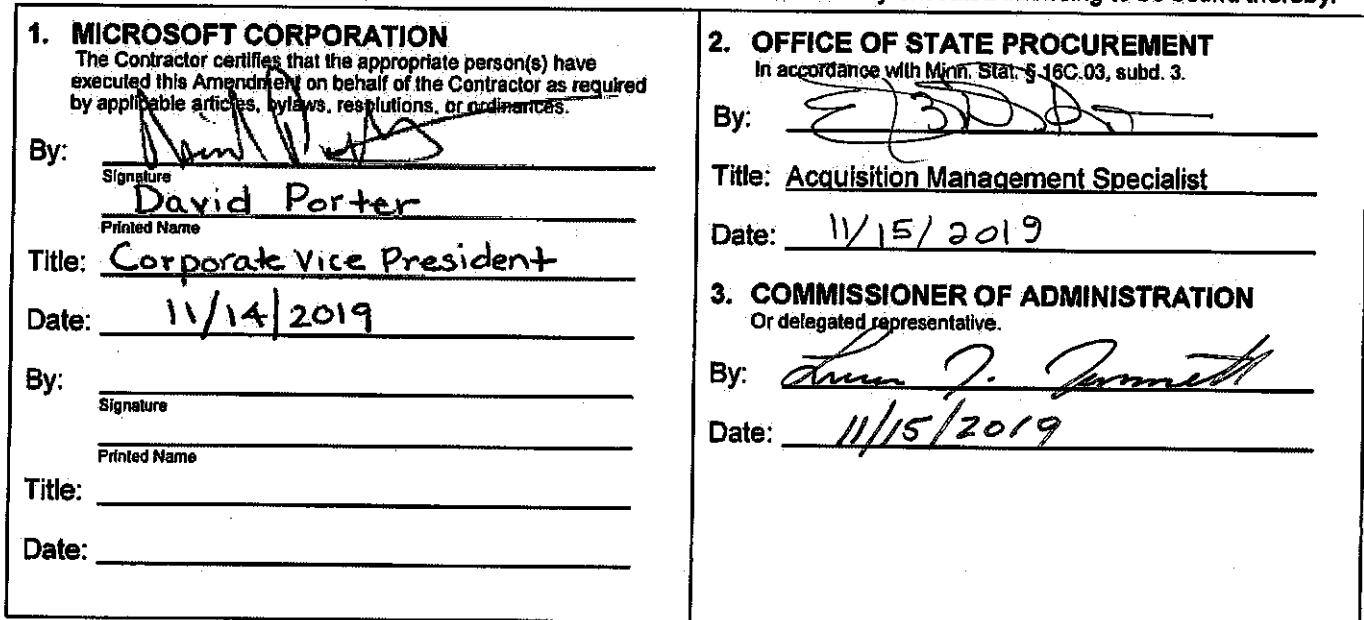 to be bound thereby.
1. MICROSOFT CORPORATION
The Contractor certifies that the appropriate person(s) have
executed this Amendment on behalf of the Contractor as required
by applicable articles, bylaws, resolutions, or ordinances.
By:
Signature
David Porter
Printed Name
Title: Corporate Vice President
Date: 11/14/2019
By:
Signature
Printed Name
Title:
Date:
2. OFFICE OF STATE PROCUREMENT
In accordance with Minn. Stat. § 16C.03, subd. 3.
By:
Title: Acquisition Management Specialist
Date: 11/15/2019
3. COMMISSIONER OF ADMINISTRATION
Or delegated representative.
By:
Date: 11/15/2019